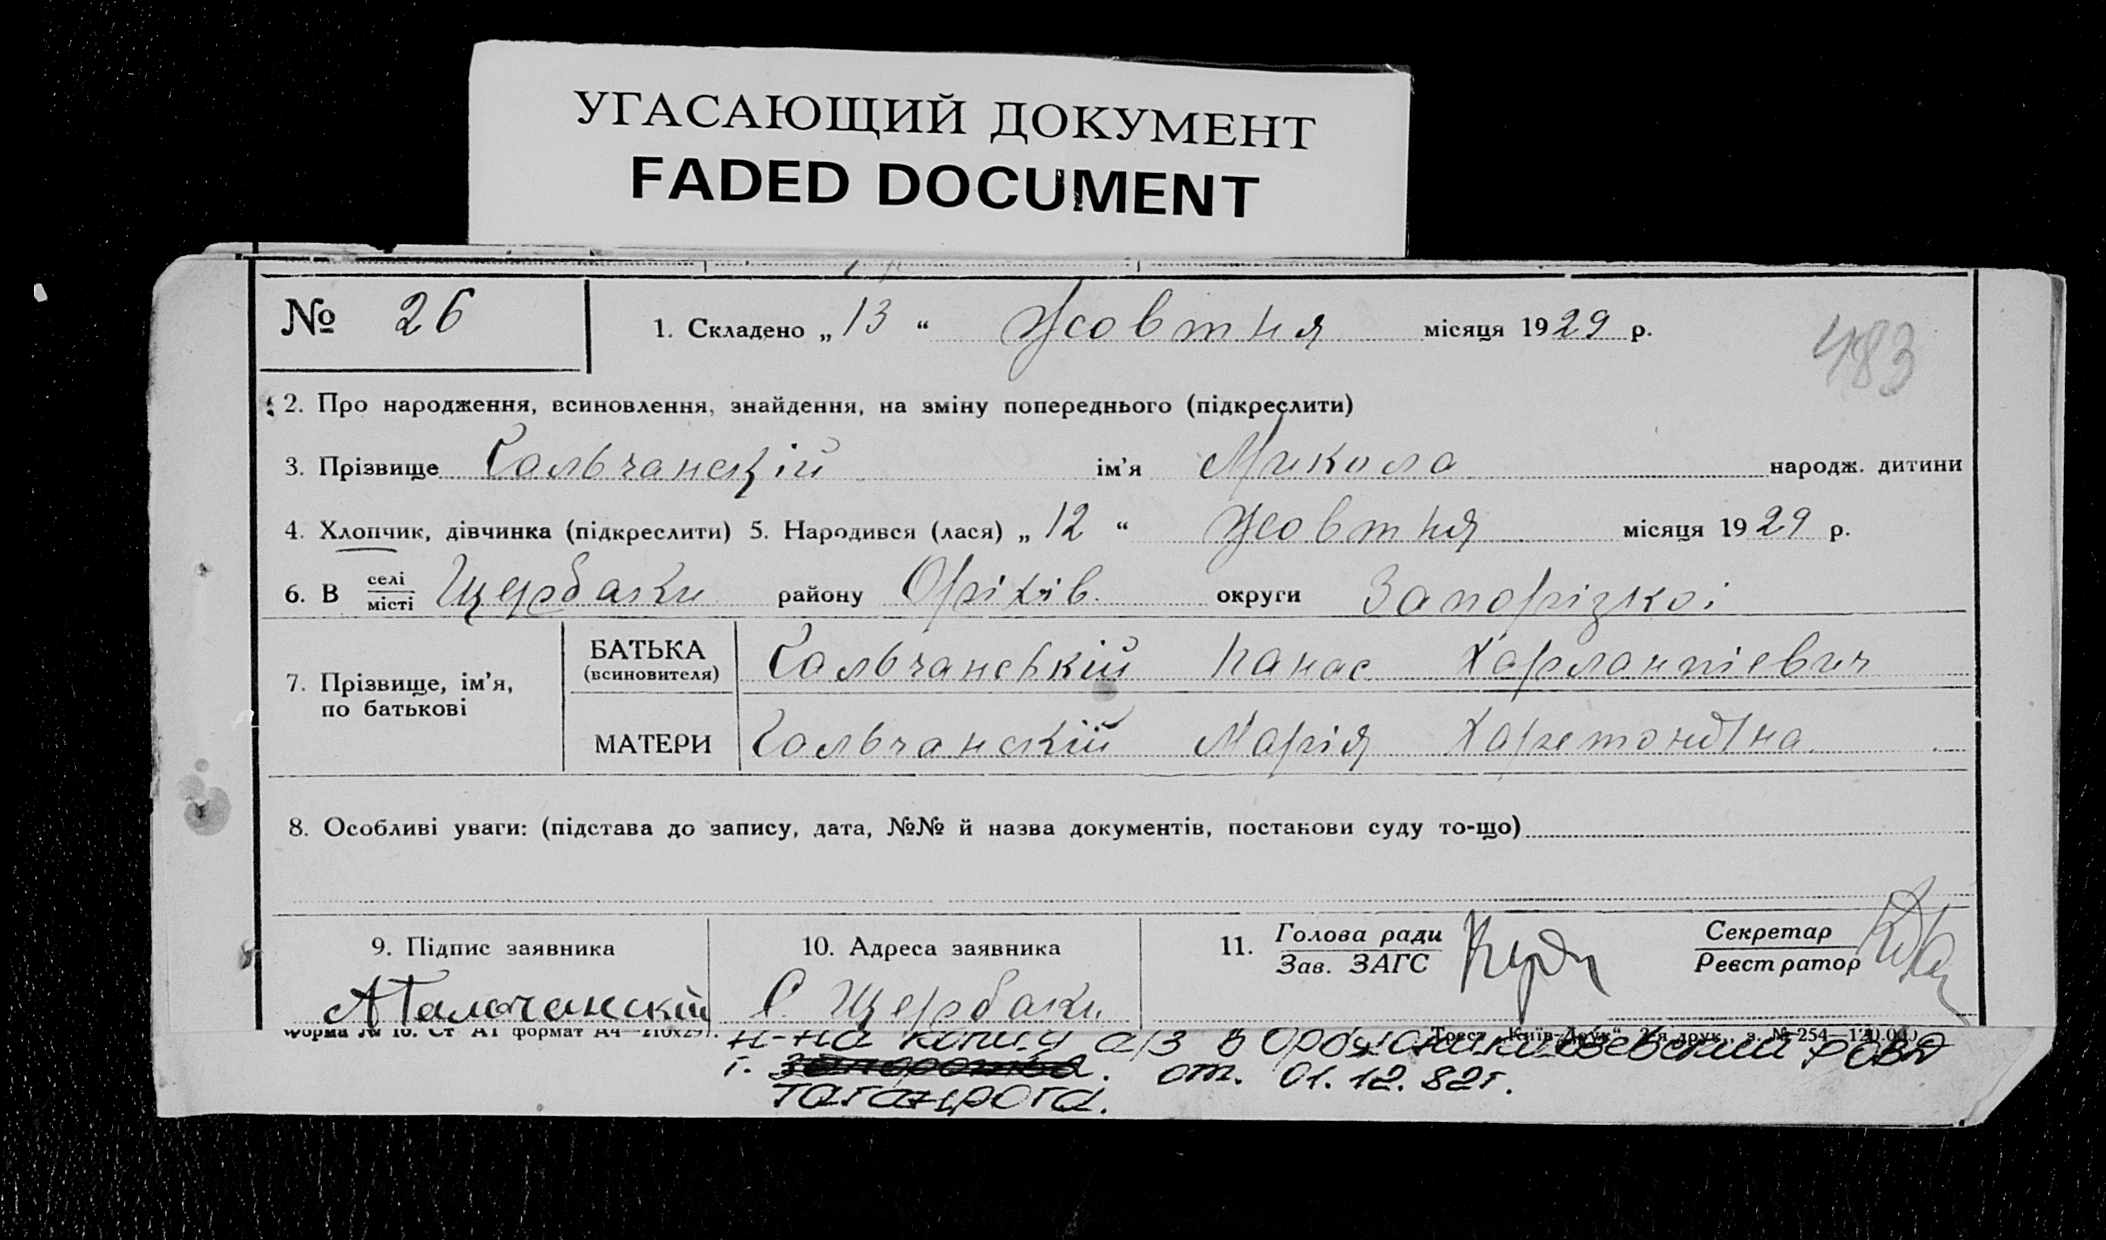 УГАСАЮЩИЙ ДОКУМЕНТ
FADED DOCUMENT
№ 26
1. Складено „ 13 “ Жовтня місяця 1929 р.
483
2. Про народження, всиновлення, знайдення, на зміну попереднього (підкреслити)
3. Прізвище Гальчанскій ім'я Микола народж. дитини
4. Хлопчик, дівчинка (підкреслити) 5. Народився (лася) „ 12 “ Жовтня місяця 1929 р.
6. В селі місті Щербаки району Оріхів округи Запорізкоі
7. Прізвище, ім'я, по батькові
БАТЬКА (всиновителя) Гальчанський Панас Харлампіевич
МАТЕРИ Гальчанскій Марія
8. Особливі уваги: (підстава до запису, дата, №№ й назва документів, постанови суду то-що)
9. Підпис заявника
АГальчанскій
10. Адреса заявника
С. Щербаки
11. Голова ради Зав. ЗАГС
Секретар Реєстратор
Форма № 10. Ст А1 формат А4—210х297.
Трест „Київ-Друк“ з. № 254—12
н-на копицу а/з в РОВД
г. Таганрога. от. 01.12.82г.